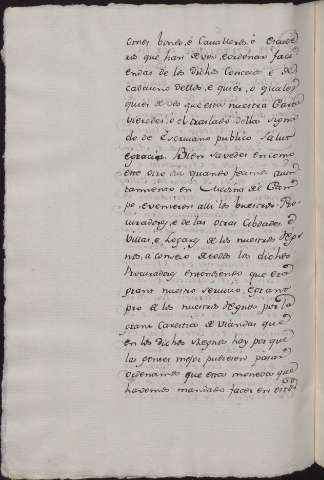 omes bonos, é Cavalleros, é escude
ros que han de veer, é ordenar faci
endas de los dichos Concejos é de
cadauno dellos, é quier, o qualqu
quier de vos que esta nuestra Carta
vieredes, o el traslado della signa
do de Escrivano publico Salut
é gracia. Bien savedes en como
este otro dia quanto feimos aiun
tamiento en Medina del Cam
po, é venieron alli los nuestros Pro
curadores, é de las otras Cibdades é
Villas, é Logares de los nuestros Reg
nos, a consejo de todos los dichos
Procuradores entendiendo que era
grant nuestro servicio é grant
pro de los nuestros Regnos por la
grant Carestia de viandas que
en los dichos Regnos hay por que
las gentes mejor pudiesen pasar
ordenamos que esta moneda que
havemos mandado facer en estos